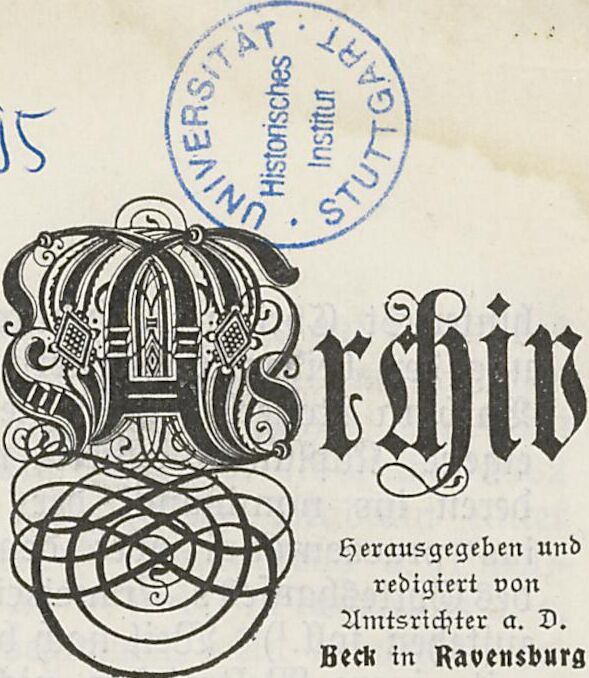 UNIVERSITÄT · STUTTGART ·
Historisches
Institut
Archiv
Herausgegeben und
redigiert von
Amtsrichter a. D.
Beck in Ravensburg